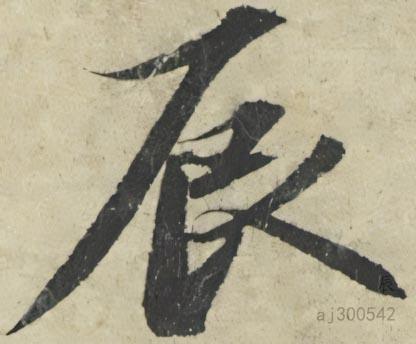 辰
aj300542